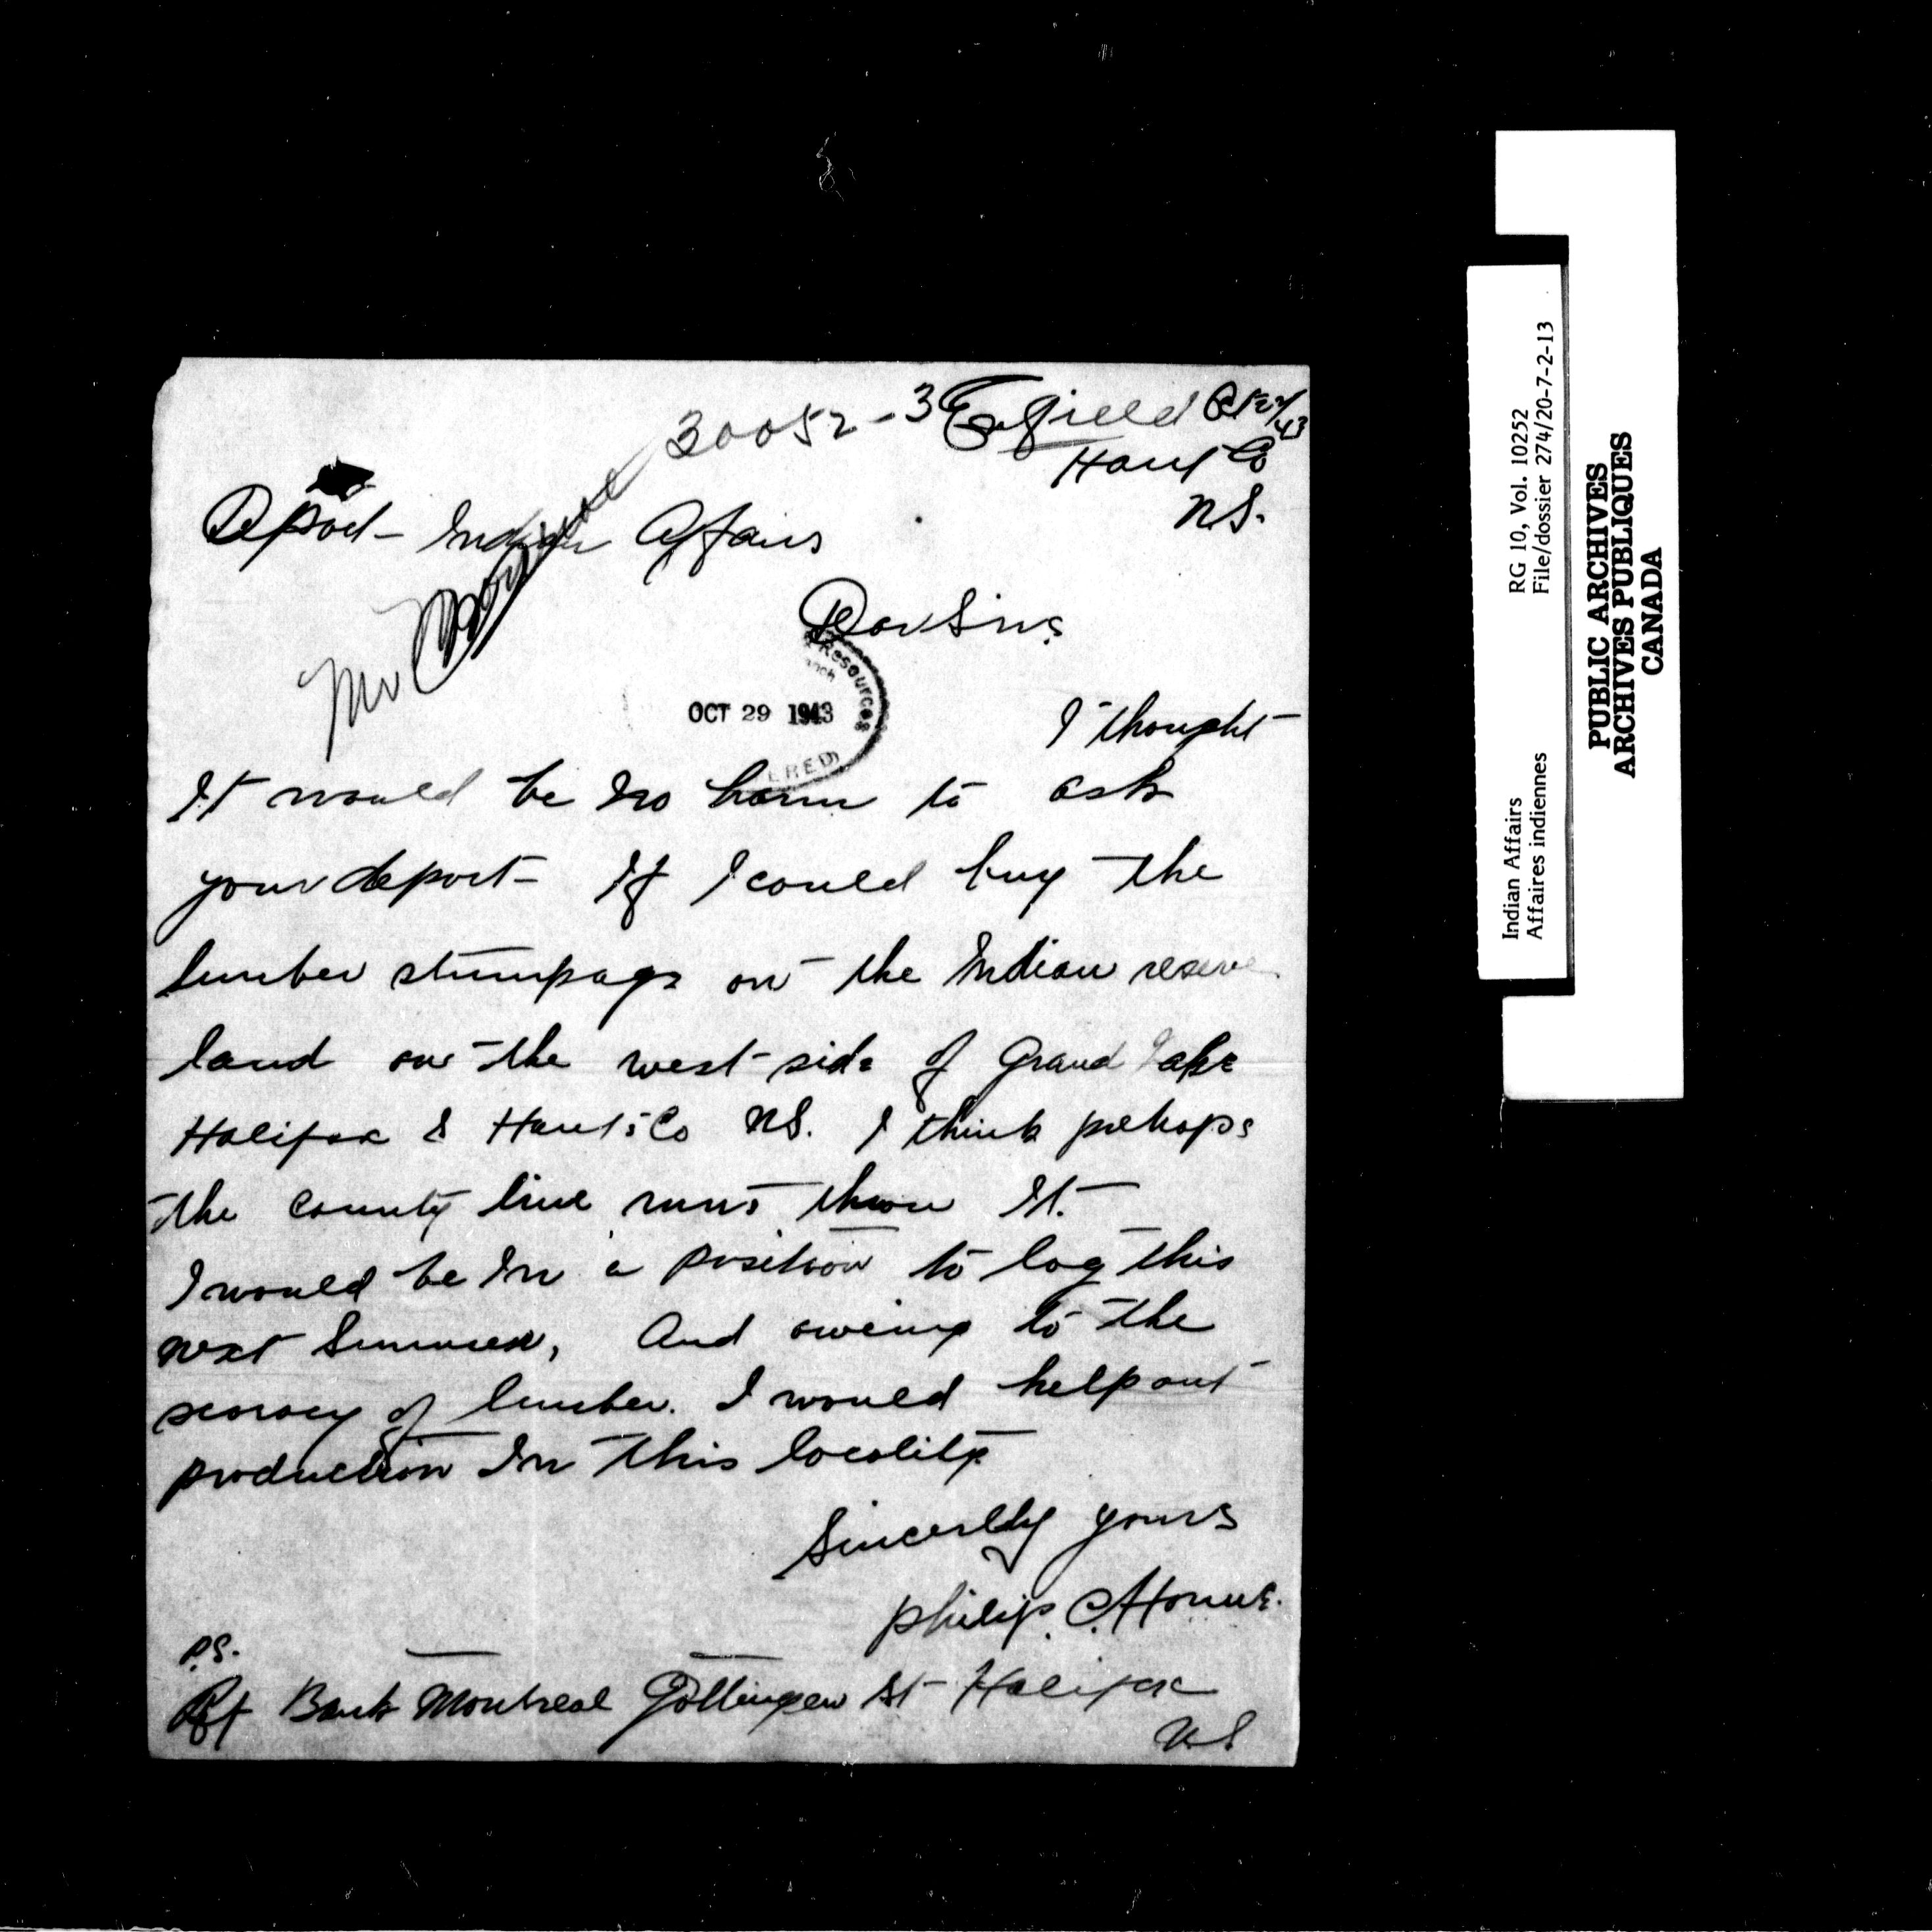 30052-3
Enfield Oct 27/43
Hants Co
N.S.
Depart- Indian Affairs
Mr
Dear Sirs
Resources
OCT 29 1943
ERED
I thought
It would be no harm to ask
your depart- If I could buy the
lumber stumpage on the Indian reserve
land on the west side of Grand Lake
Halifax & Hants Co NS. I think perhaps
the county line runs throu It.
I would be In a position to log this
next Summer, And oweing to the
scarcy of lumber. I would help out
production In this locality
Sincerlly yours
philip. C. Horne.
P.S.
Rf Bank Montreal Gottingen St Halifax
N.S
Indian Affairs RG 10, Vol. 10252
Affaires indiennes File/dossier 274/20-7-2-13
PUBLIC ARCHIVES
ARCHIVES PUBLIQUES
CANADA